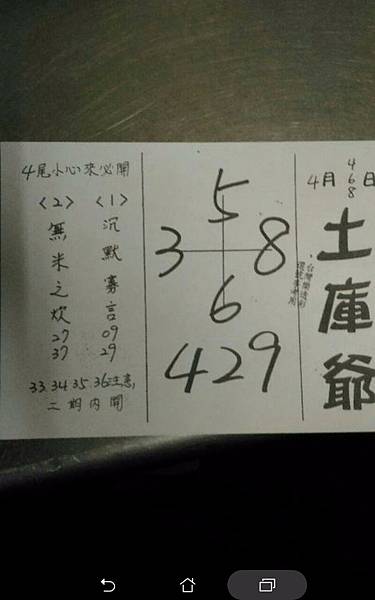 4月4 6 8日
土庫爺
5
3 8
6
429
4尾小心來必開
<1>
沉默寡言
09
29
<2>
無米之炊
27
37
33.34.35.36注意,
二期内開